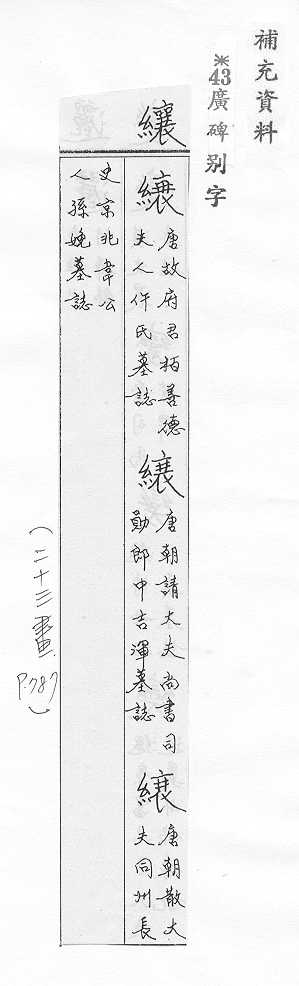 補充資料
※43廣碑別字
纕
纕 唐故府君栢善德
夫人仵氏墓誌
纕 唐朝請大夫尚書司
勛郎中吉渾墓誌
纕 唐朝散大
夫同州長
史京兆韋公
人孫娩墓誌
(二十三畫
P.787)